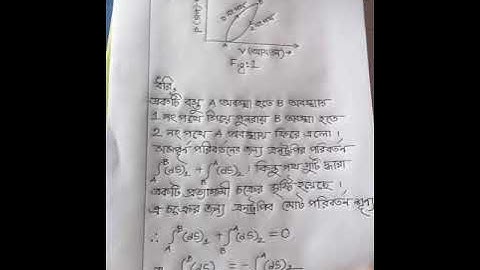 P (চাপ)
১ নং পথ
২ নং পথ
A
V (আয়তন) →
Fig:1
ধরি,
একটি বস্তু A অবস্থা হতে B অবস্থায়
1 নং পথে গিয়ে পুনরায় B অবস্থা হতে
2 নং পথে A অবস্থায় ফিরে এলো।
পরিবর্তনের জন্য এনট্রপির পরিবর্তন
∫_A^B (dS)₁ + ∫_B^A (dS)₂। কিন্তু পথ দুটি দ্বারা
একটি প্রত্যাগামী চক্রের সৃষ্টি হয়েছে।
এ চক্রের জন্য এনট্রপির মোট পরিবর্তন শূন্য
∴ ∫_A^B (dS)₁ + ∫_B^A (dS)₂ = 0
∫^B (dS)₁ = - ∫^A (dS)₂